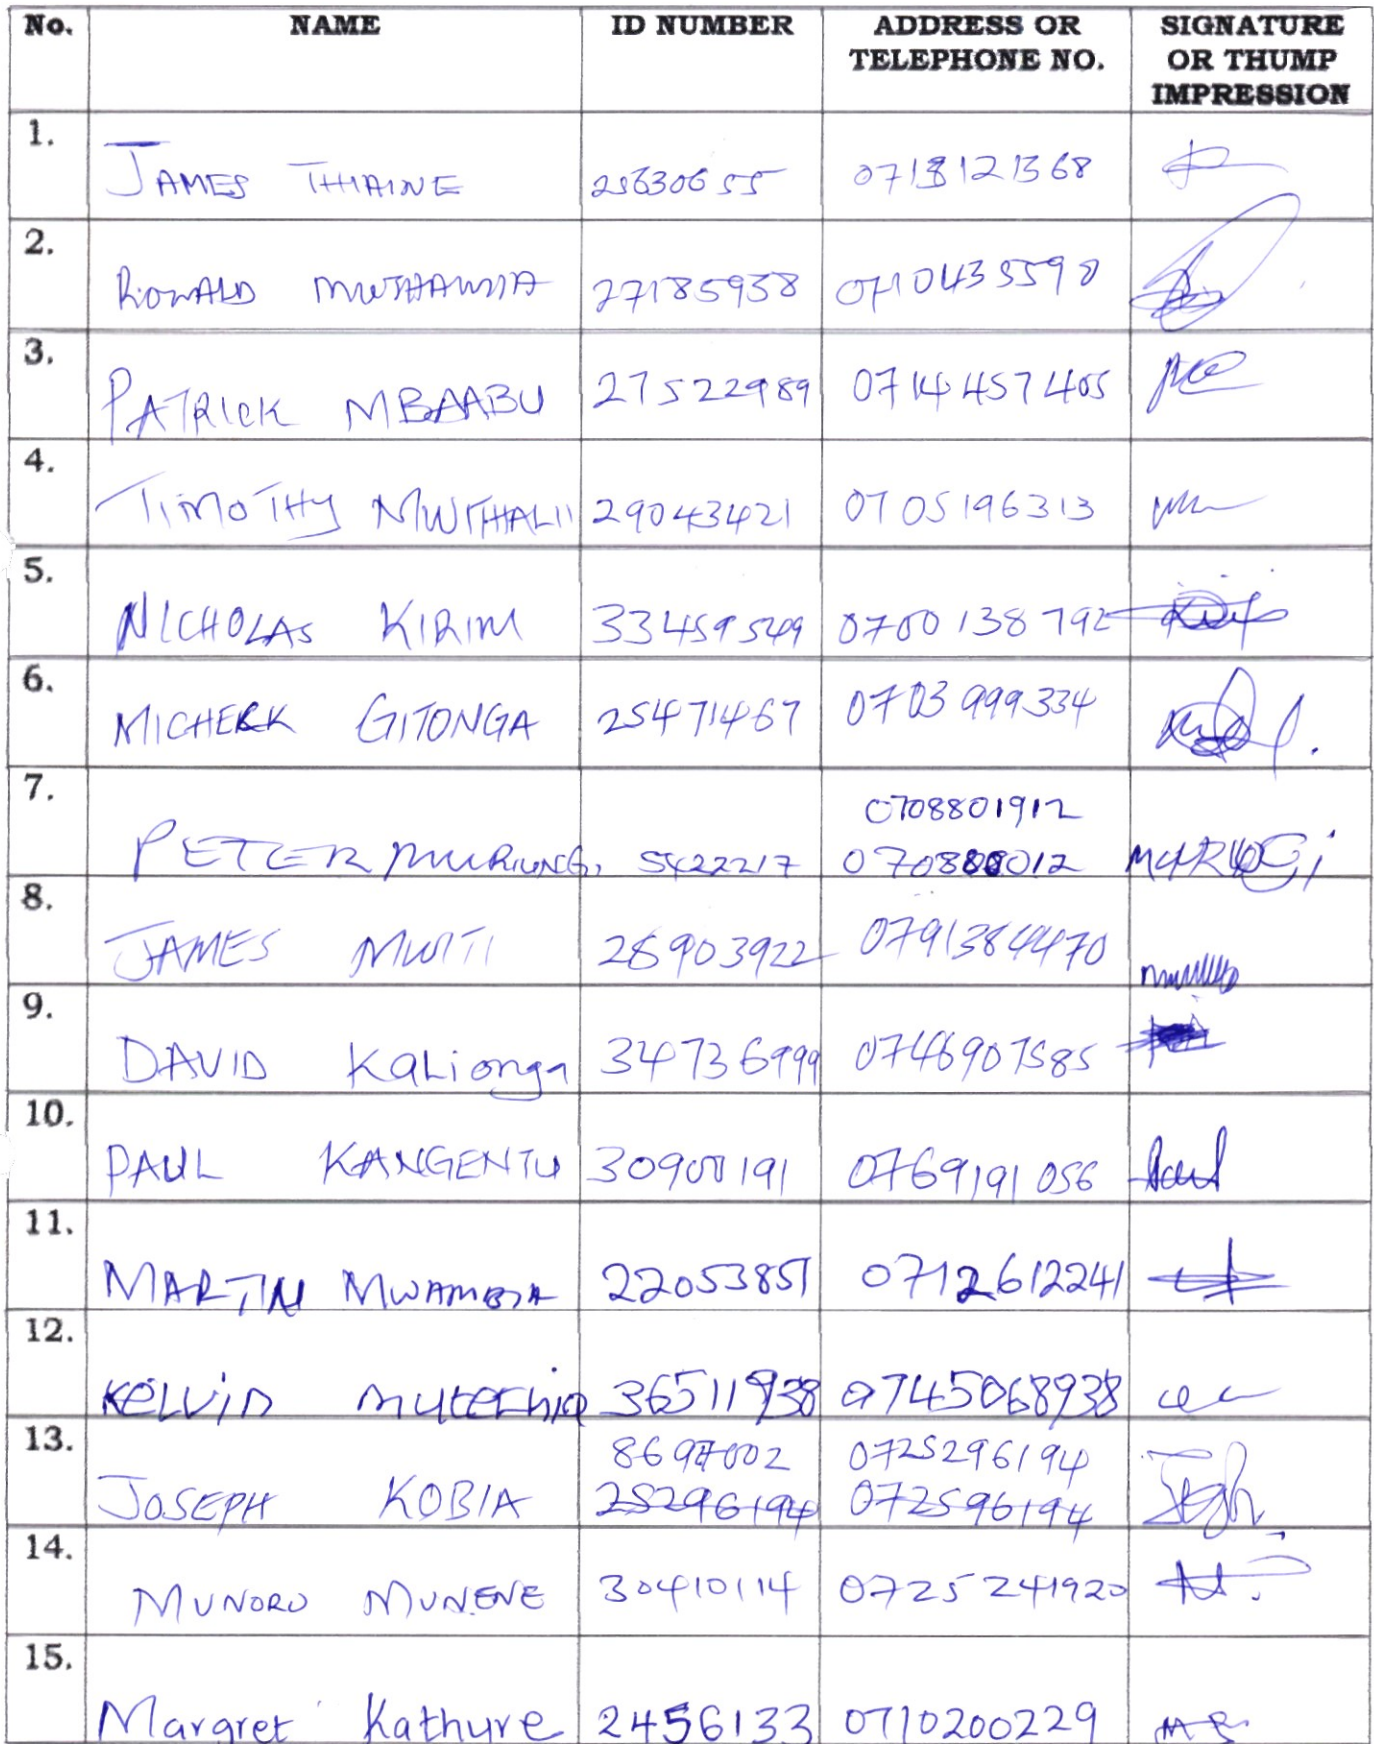 No. NAME ID NUMBER ADDRESS OR TELEPHONE NO. SIGNATURE OR THUMP IMPRESSION
1. JAMES THIAINE 25630655 0713121368
2. RONALD 27185938 0710435590
3. PATRICK MBAABU 27522989 0714457405
4. TIMOTHY MWTHALII 29043421 0705196313
5. NICHOLAS KIRIMI 33459549 0700138792
6. MICHECK GITONGA 25471467 0703999334
0708801912
7. PETER MURIUNGI 5422217 MURUNGi
8. JAMES MWITI 28903922 0791384470
9. DAVID Kalionga 34736999 0746907585
10. PAUL KANGENTU 30900191 0769191056 Paul
11. MARTIN MWAMBIA 22053851 0712612241
12. KELViN mutethia 36511938 0745068938
8697002 0725296194
13. JOSEPH KOBIA 25296194 072596194
14. MUNORU MUNENE 30410114 0725241920
15. Margret Kathure 2456133 0710200229